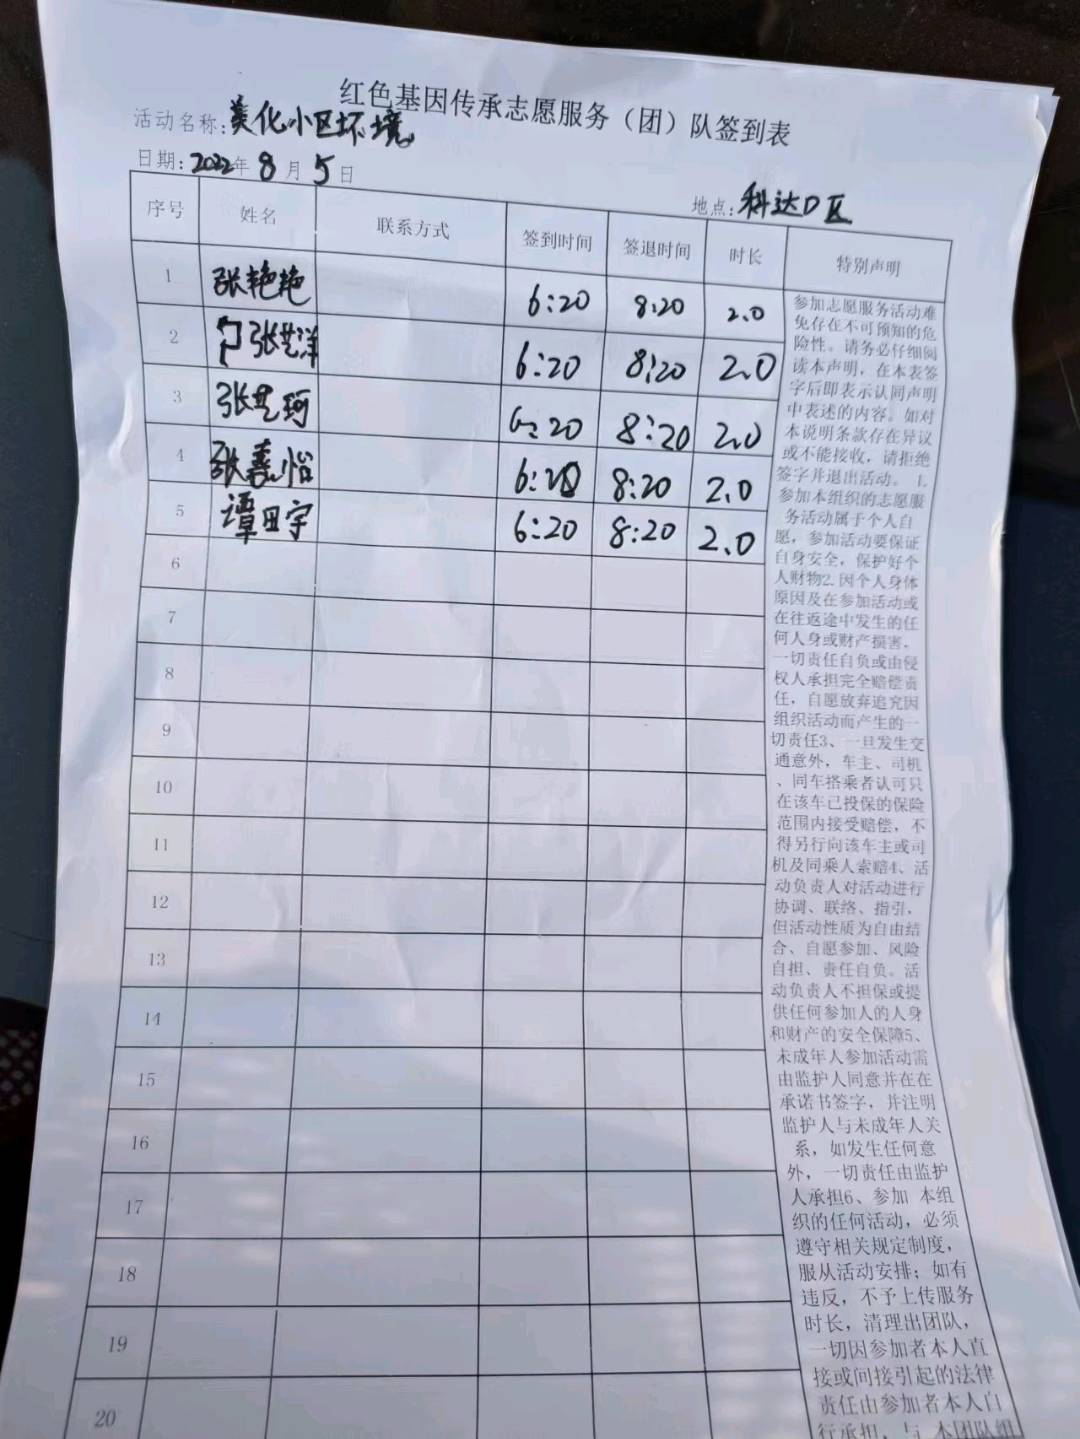 红色基因传承志愿服务（团）队签到表
活动名称:美化小区环境
日期:2022年8月5日
地点:科达D区
序号 姓名 联系方式 签到时间 签退时间 时长 特别声明
1 张艳艳 6:20 8:20 2.0
2 张艺洋 6:20 8:20 2.0
3 张艺珂 6:20 8:20 2.0
4 张嘉怡 6:20 8:20 2.0
5 谭田宇 6:20 8:20 2.0
6
7
8
9
10
11
12
13
14
15
16
17
18
19
20
参加志愿服务活动难
免存在不可预知的危
险性。请务必仔细阅
读本声明，在本表签
字后即表示认同声明
中表述的内容。如对
本说明条款存在异议
或不能接收，请拒绝
签字并退出活动。 1.
参加本组织的志愿服
务活动属于个人自
愿，参加活动要保证
自身安全，保护好个
人财物2.因个人身体
原因及在参加活动或
在往返途中发生的任
何人身或财产损害，
一切责任自负或由侵
权人承担完全赔偿责
任，自愿放弃追究因
组织活动而产生的一
切责任3、一旦发生交
通意外，车主、司机
、同车搭乘者认可只
在该车已投保的保险
范围内接受赔偿，不
得另行向该车主或司
机及同乘人索赔4、活
动负责人对活动进行
协调、联络、指引，
但活动性质为自由结
合、自愿参加、风险
自担、责任自负。活
动负责人不担保或提
供任何参加人的人身
和财产的安全保障5、
未成年人参加活动需
由监护人同意并在在
承诺书签字，并注明
监护人与未成年人关
系，如发生任何意
外，一切责任由监护
人承担6、参加 本组
织的任何活动，必须
遵守相关规定制度，
服从活动安排；如有
违反，不予上传服务
时长，清理出团队，
一切因参加者本人直
接或间接引起的法律
责任由参加者本人自
行承担，与 本团队组